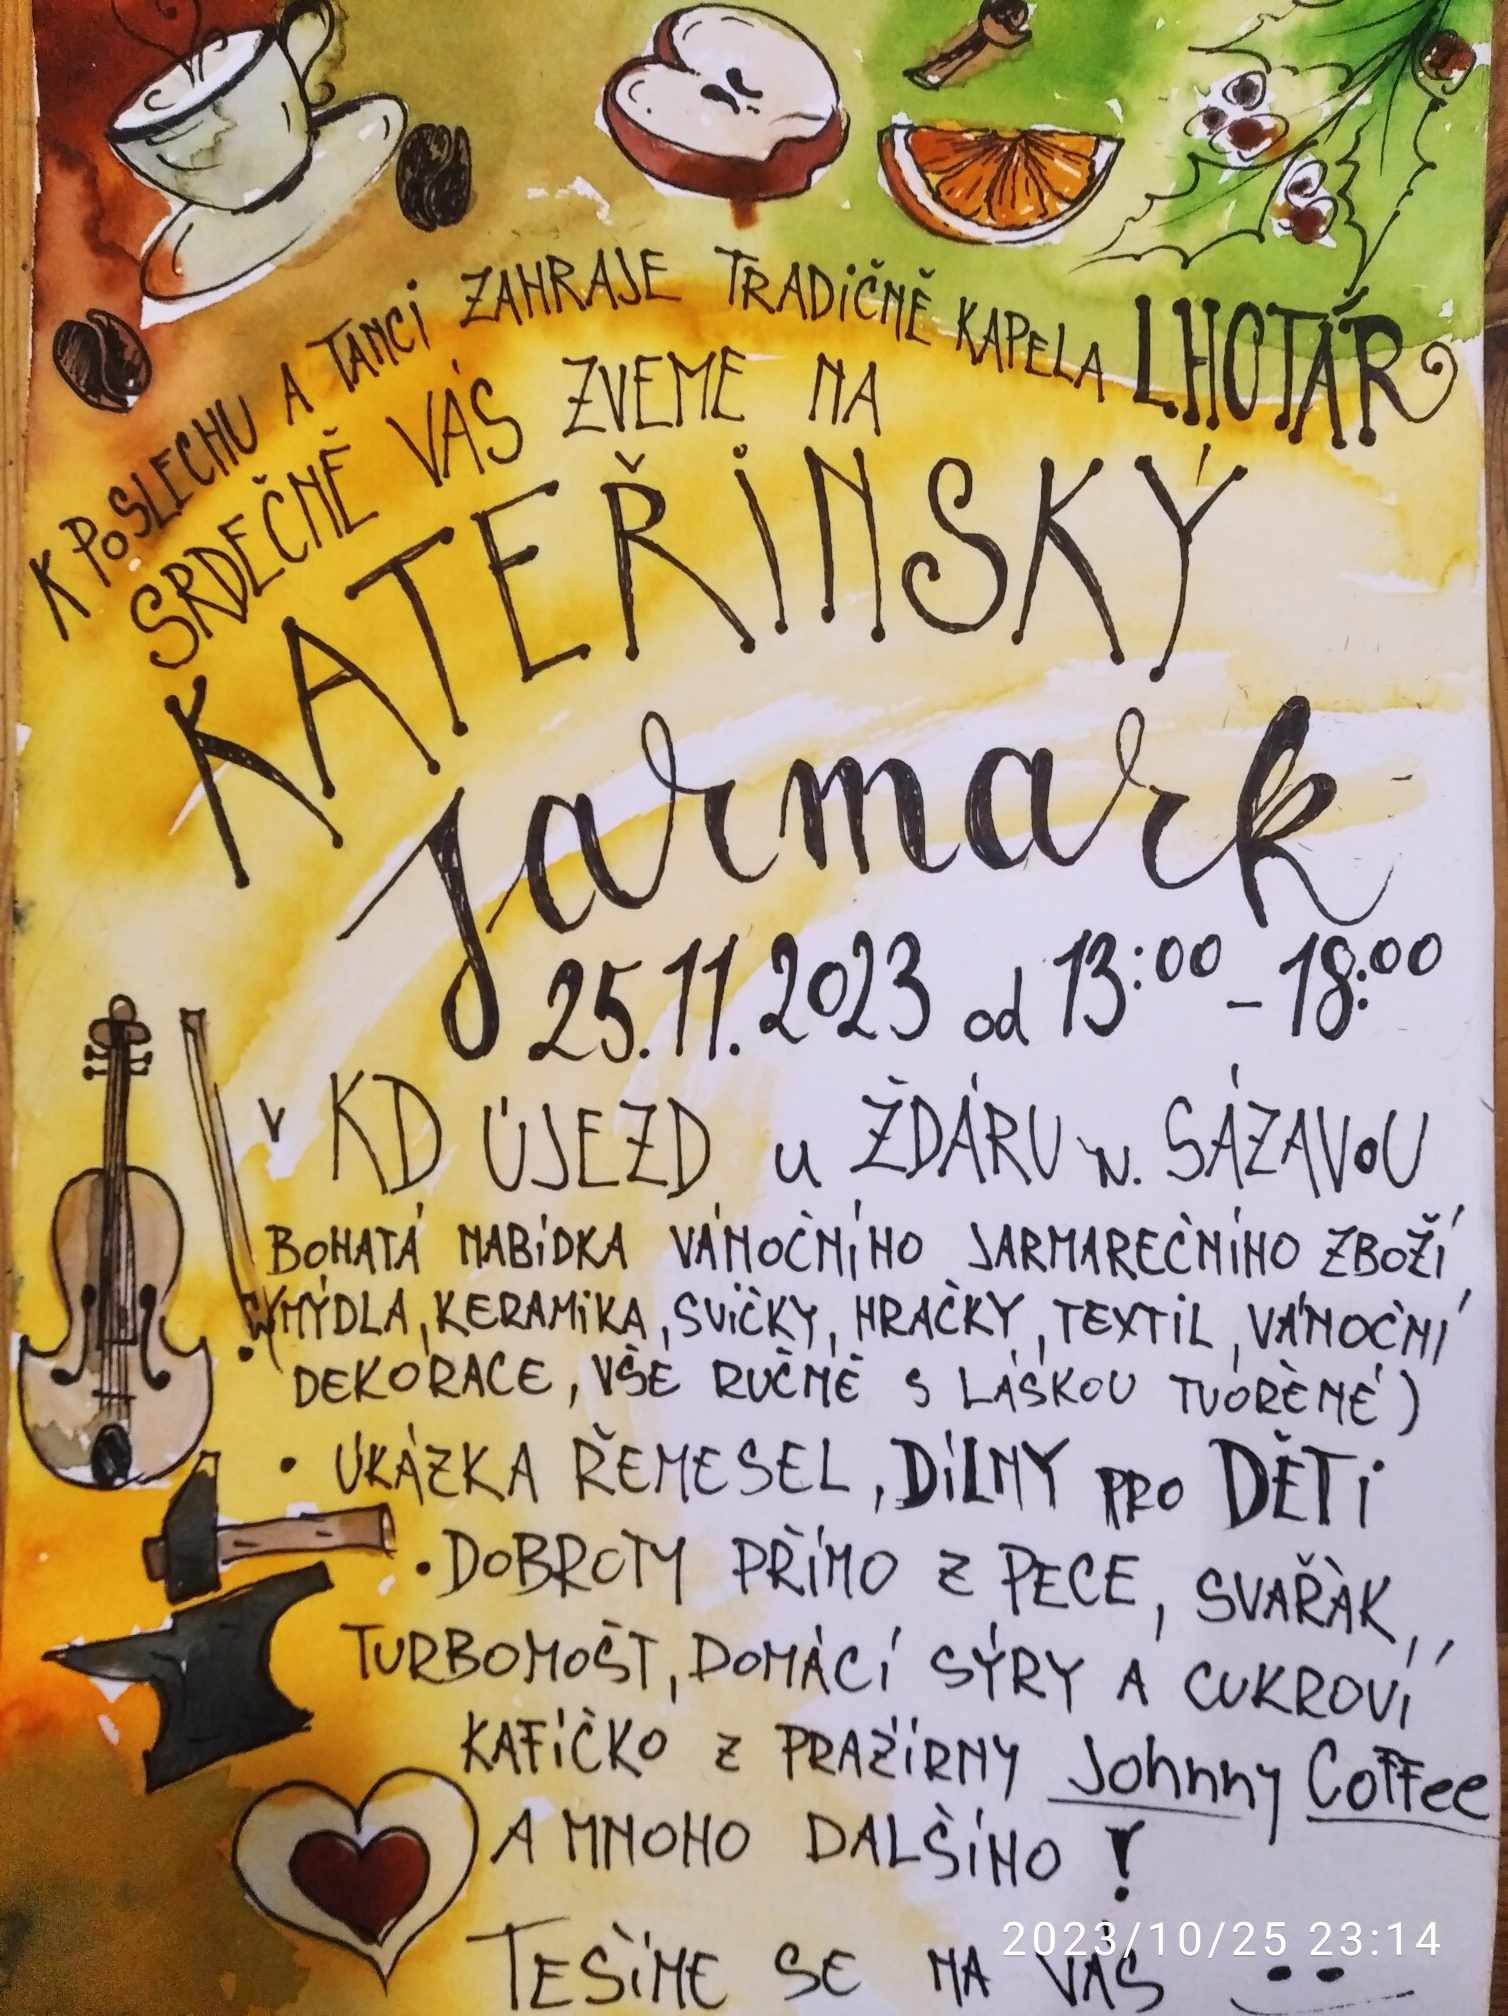 K POSLECHU A TANCI ZAHRAJE TRADIČNĚ KAPELA LHOTÁR
SRDEČNĚ VÁS ZVEME NA
KATEŘINSKÝ
Jarmark
25.11.2023 od 13:00 - 18:00
v KD ÚJEZD u ŽĎÁRU N. SÁZAVOU
BOHATÁ NABÍDKA VÁNOČNÍHO JARMAREČNÍHO ZBOŽÍ
(MÝDLA, KERAMIKA, SVÍČKY, HRAČKY, TEXTIL, VÁNOČNÍ
DEKORACE, VŠE RUČNĚ S LÁSKOU TVOŘENÉ)
• UKÁZKA ŘEMESEL, DÍLNY PRO DĚTI
• DOBROTY PŘÍMO Z PECE, SVAŘÁK,
TURBOMOŠT, DOMÁCÍ SÝRY A CUKROVÍ
KAFÍČKO Z PRAŽÍRNY Johnny Coffee
A MNOHO DALŠÍHO!
TEŠÍME SE NA VÁS
2023/10/25 23:14